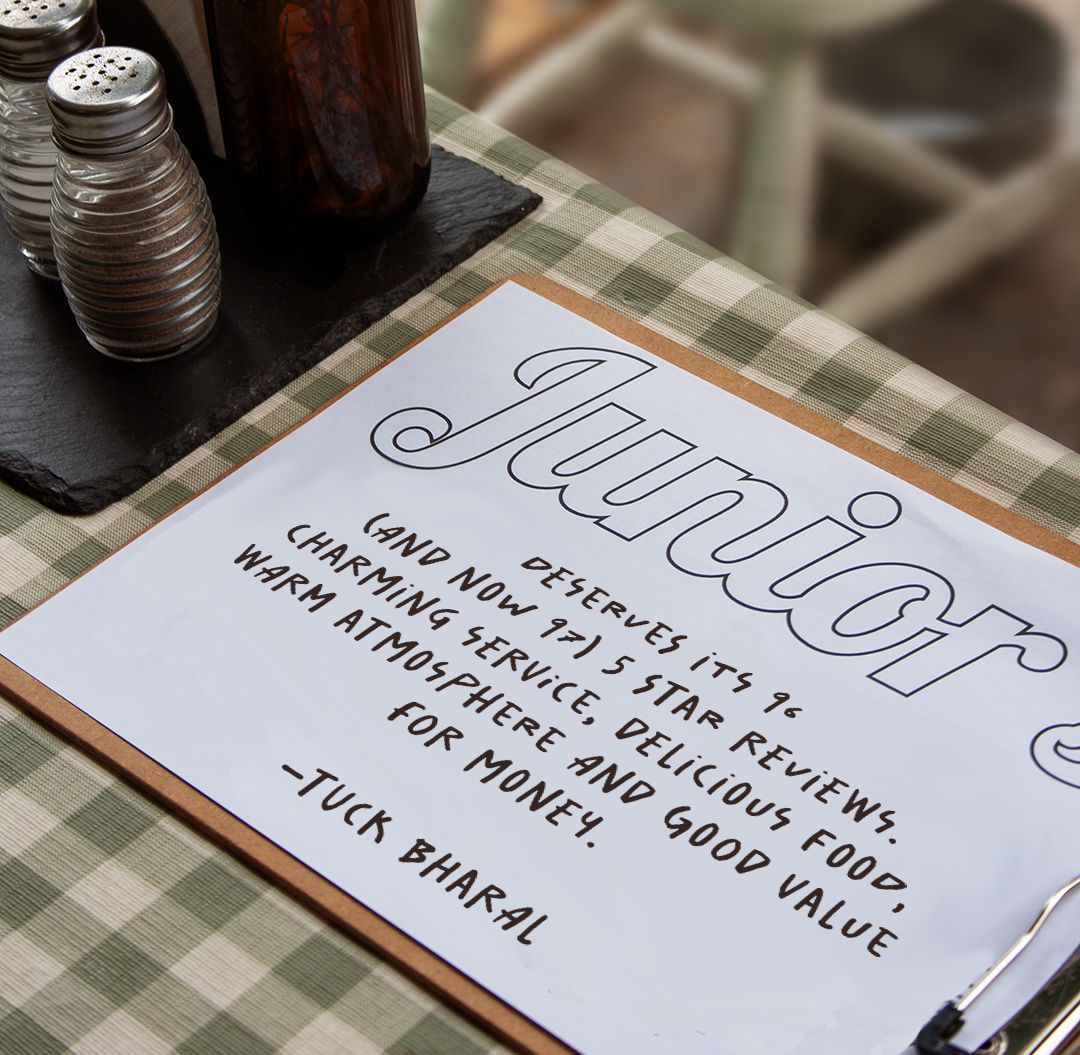 Junior
DESERVES iTS 96
(AND NOW 97) 5 STAR REViEWS.
CHARMiNG SERViCE, DELiCiOUS FOOD,
WARM ATMOSPHERE AND GOOD VALUE
FOR MONEY.
-TUCK BHARAL